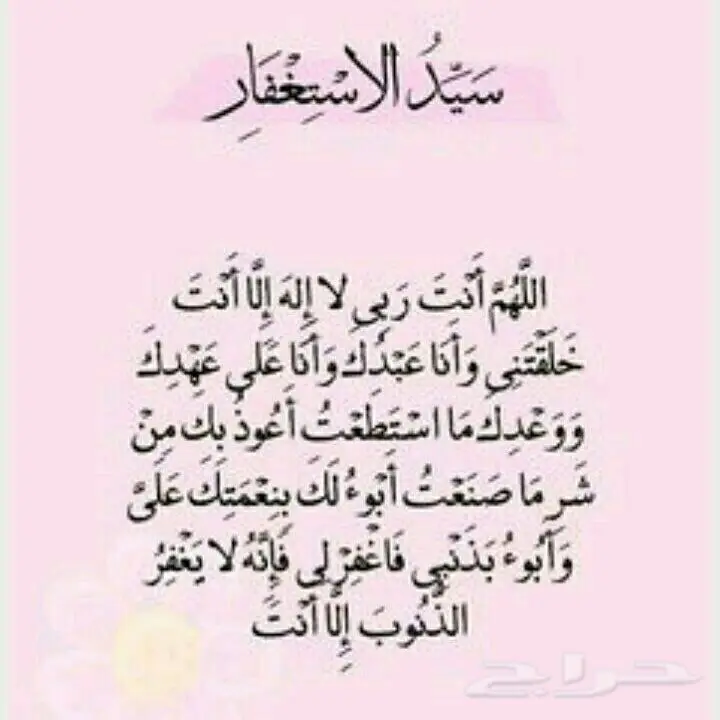 سَيِّدُ الاسْتِغْفَارِ
اللَّهُمَّ أَنْتَ رَبِي لا إِلهَ إِلَّا أَنْتَ
خَلَقْتَنِي وَأَنَا عَبْدُكَ وَأَنَا عَلَى عَهْدِكَ
وَوَعْدِكَ مَا اسْتَطَعْتُ أَعُوذُ بِكَ مِنْ
شَرِ مَا صَنَعْتُ أَبُوءُ لَكَ بِنِعْمَتِكَ عَلَىَّ
وَأَبُوءُ بَذَنْبِي فَاغْفِرْ لِي فَإِنَّهُ لا يَغْفِرُ
الذُّنُوبَ إِلَّا أَنْتَ
حراج